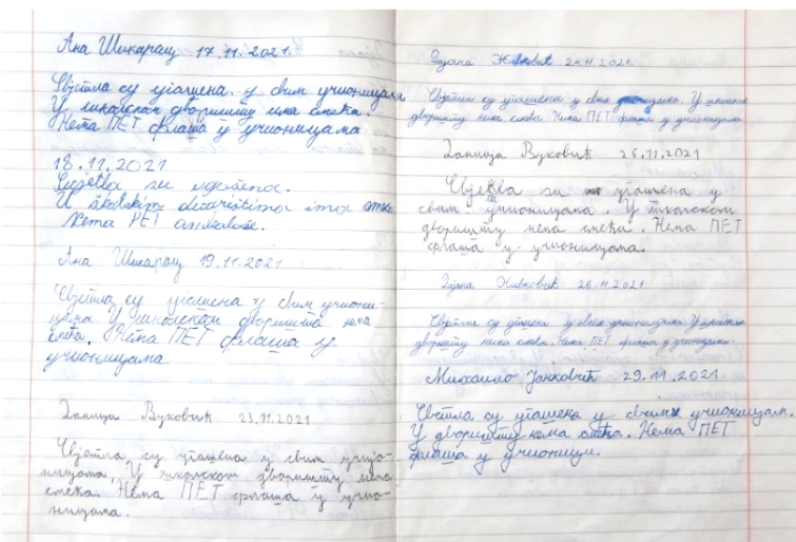 Ана Шикарац 17.11.2021.
Свјетла су угашена у свим учионицама
У школском дворишту има смећа.
Нема ПЕТ флаша у учионицама
18.11.2021
Svjetla su ugašena.
U školskim dvorištima ima smeća
Nema PET ambalaže.
Ана Шикарац 19.11.2021
Свјетла су угашена у свим учиони-
цама. У школском дворишту нема
смећа. Нема ПЕТ флаша у
учионицама
Даница Вуковић 23.11.2021
Свјетла су угашена у свим учио-
ницама. У школском дворишту нема
смећа. Нема ПЕТ флаша у учио-
ницама.
Дајана Живковић 24.11.2021.
Свјетла су угашена у свим. У школском
дворишту нема смећа. Нема ПЕТ флаша у учионицама
Даница Вуковић 25.11.2021
Свјетла su угашена у
свим учионицама. У школском
дворишту нема смећа. Нема ПЕТ
флаша у учионицама.
Дајана Живковић 26.11.2021
Свјетла су угашена у свим учионицама. У школском
дворишту нема смећа. Нема ПЕТ флаша у учионицама.
Михаило Јанковић 29.11.2021
Свјетла су угашена у свим учионицам.
У дворишту нема смећа. Нема ПЕТ
флаша у учионици.